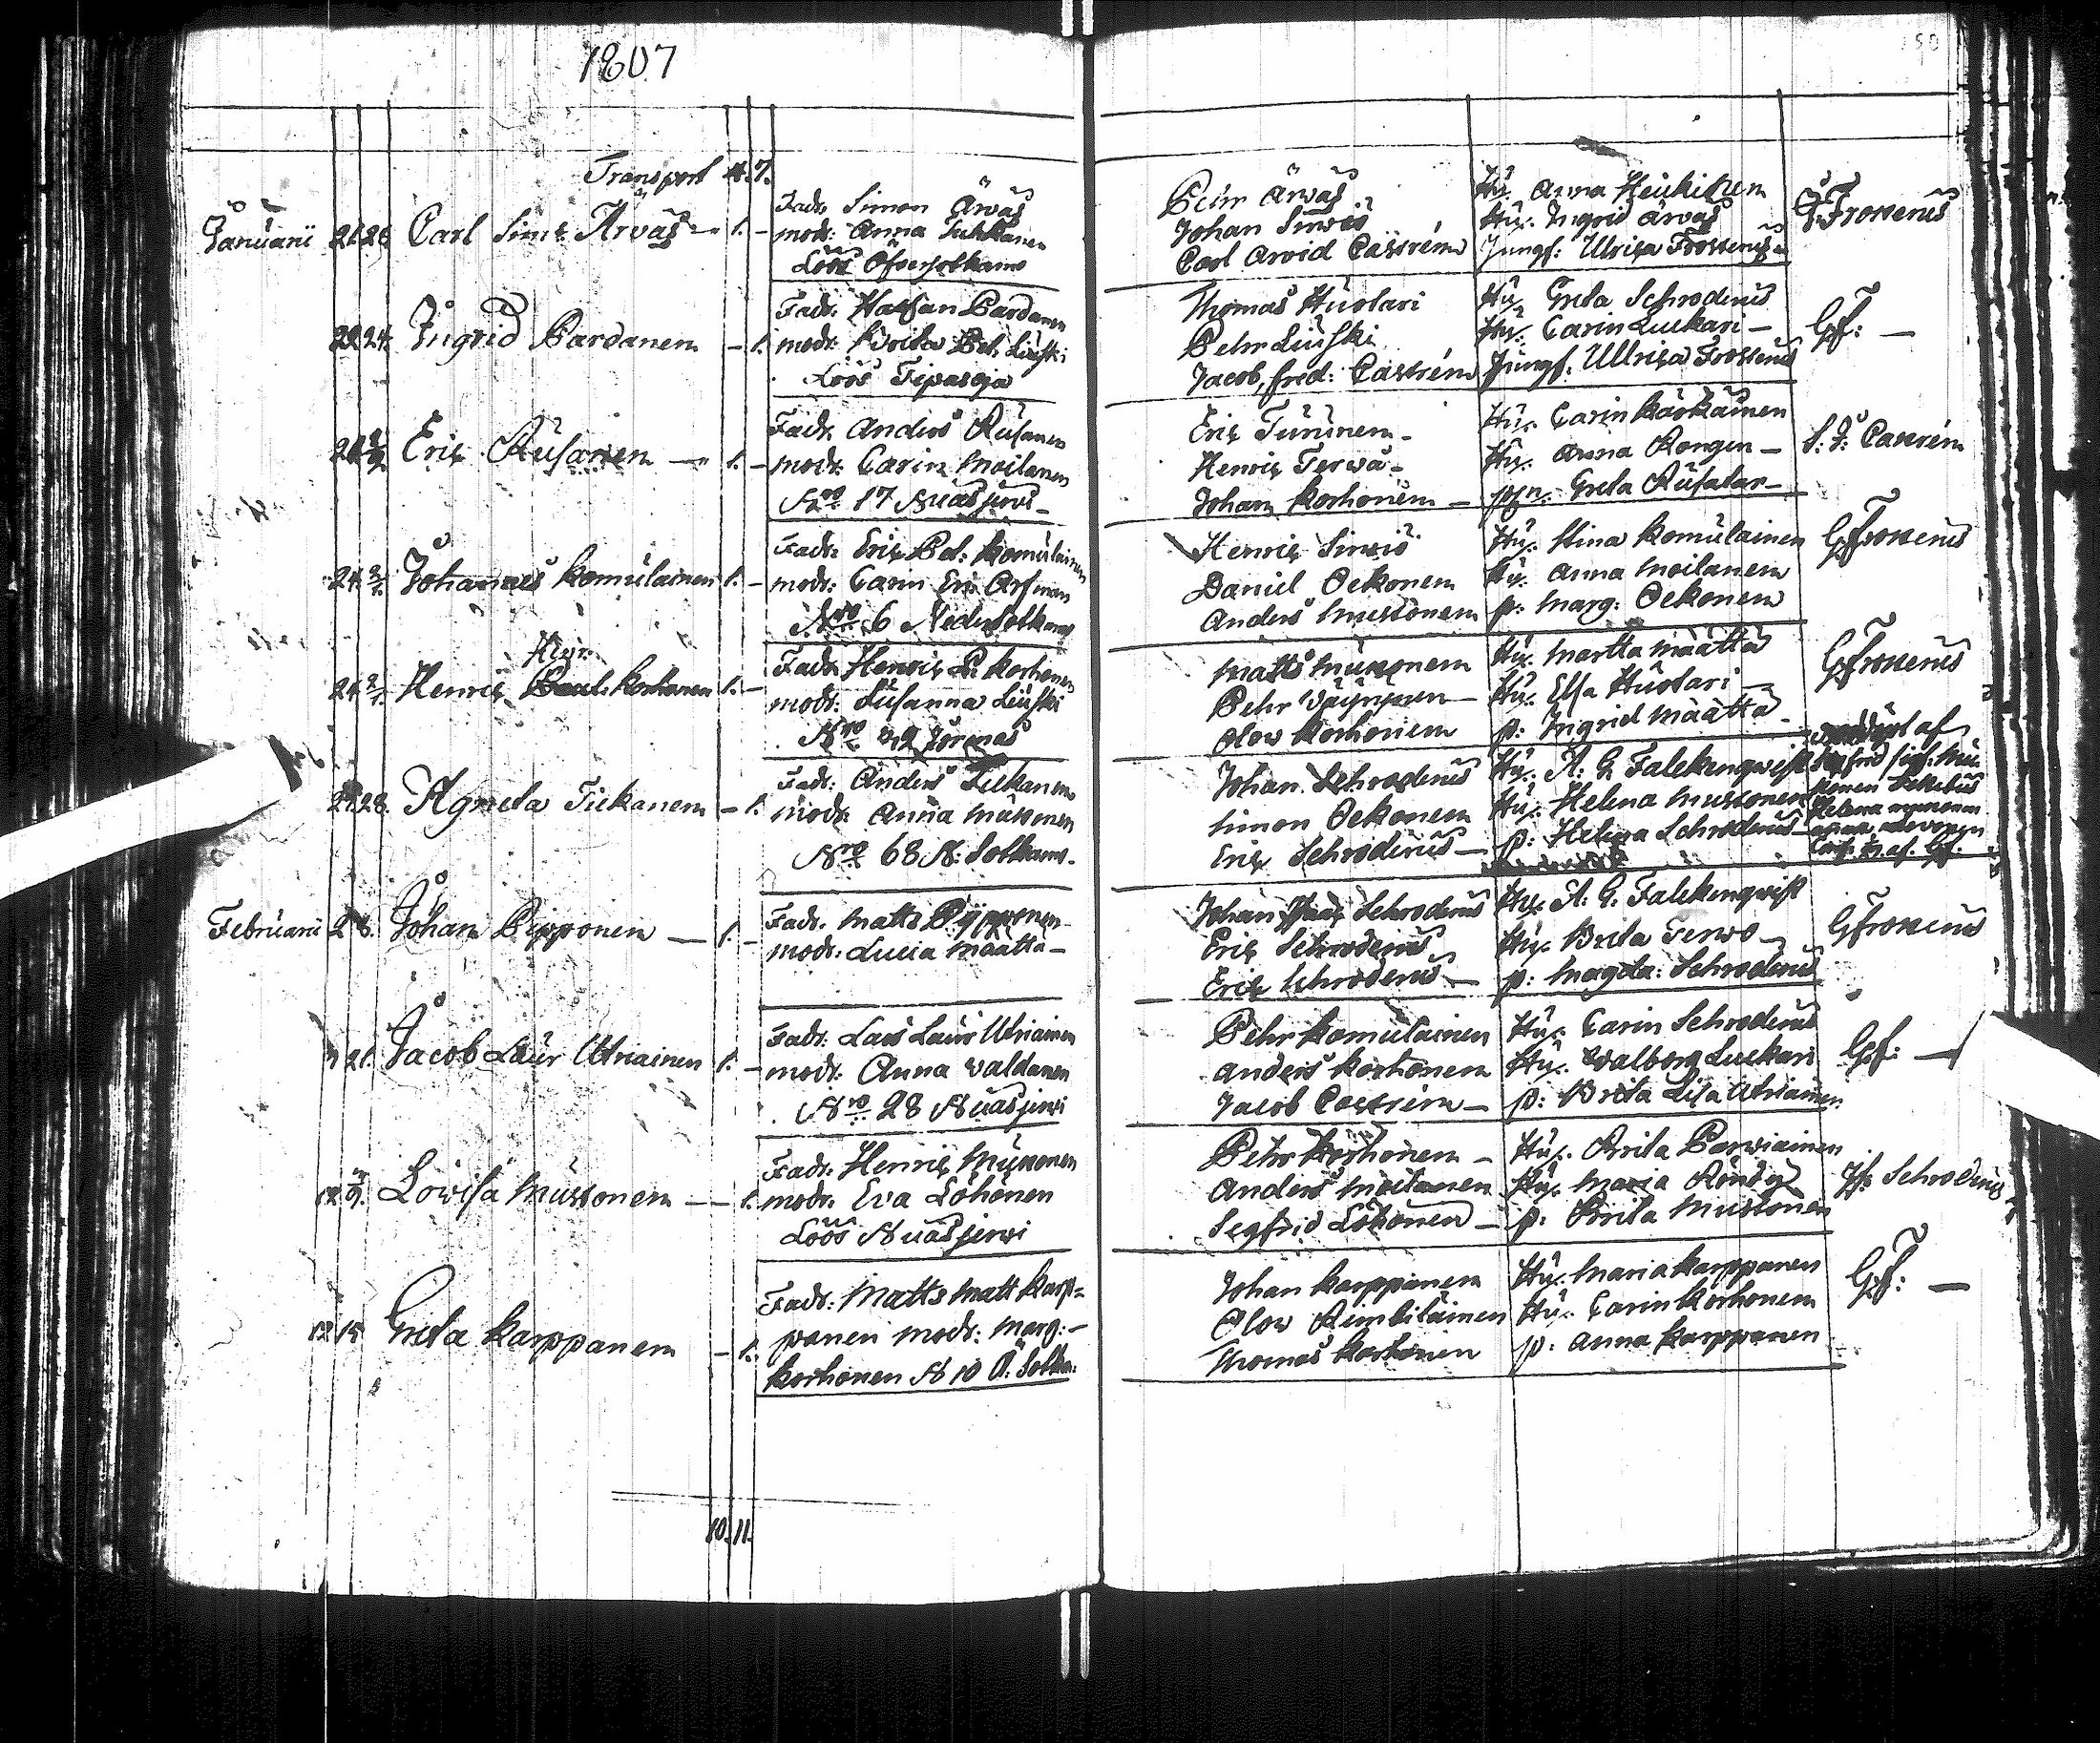 1807
Transport 4. 7.
Januarii 21 26 Carl Sims Ärväs — 1. —
Fadr. Simon Ärväs
modr. Anna Juhkanen
Löös Öfversotkamo
Pehr Ärväs
Johan Sirviö
Carl Arvid Castrém
Hu. Anna Heikikem
Hu. Ingrid Ärväs
Jungf: Ulrica Frosserus
G Frosserus
22 24. Ingrid Pardanen — 1.
Fadr. Pardanen
modr. Brita Liuski
Löös Tipasoja
Thomas Huotari
Pehr Liuski
Jacob, fred: Castrém
Hu. Greta Schroderus
Hu. Carin Luckari —
Jungf. Ullrica Frosserus
Gf: —
Eric Rusanen — 1. —
Fadr. Anders Rusanen
modr: Carin Moilanen
Nro 17 Nuasjervi —
Eric Turunem —
Henric Terwa —
Johan Korhonem —
Hu. Carin Kärkäinen
Hu. Anna Rongen —
Greta Rusalar —
Castrém
24 Johannes Komulainen 1. —
Fadr: Eric Pet: Komulainen
modr: Carin Eri
Nro 6 Nedersotkamo
Henric Sirviö
Daniel Oekonem
Anders Mustonem
Hu. Stina Komulainen
Hu. Anna Moilanem
p: Marg: Oekonen
G Frosserus
Henr
24 Henric Paul. Korhonen 1. —
Fadr. Henric P. Korhonen
modr: Susanna Liuski
Nro 39 Jormas
Matts Mustonem
Pehr Väyrynen —
Olov Korhonem
Hu. Martta Määttä
Hu. Elsa Huotari —
p: Ingrid Määttä
G Frosserus
28. Agneta Tickanem — 1.
Fadr: Anders Tickanem
modr: Anna Mustonen
Nro 68 N: Sotkamo.
Johan Schroderus
Simon Oekonem
Eric Schroderus —
Hu. A: G. Falckengwist
Hu. Helena Mustonen
p: Helena Schroderus
af
Helena Mustonen
af. Gf.
Februarii 2 8. Johan Pipponen — 1. —
Fadr. Matts Pypponen
modr: Lucia Määttä —
Johan Schroderus
Eric Schroderus
Eric Schroderus —
Hu. A. G. Falckengwist
Hu. Brita Terwo —
p: Magda: Schroderus
G Frosserus
21. Jacob Laur Utriainen 1. —
Fadr: Lars Laur Utriainen
modr: Anna Valdanen
Nro 28 Nuasjervi
Pehr Komulainen
Anders Korhonem
Jacob Castrém —
Hu. Carin Schroderus
Hu. Walborg Luckari
p: Brita Lisa Utriainen
Gf: —
12 Lovisa Mustonem — 1.
Fadr. Henric Mustonen
modr. Eva Löhönen
Löös Nuasjervi
Pehr Korhonem —
Anders Moilanen
Segfrid Löhönen —
Hu. Brita Parviainen
Hu. Maria
p: Brita Mustonen
Schroderus
12 15 Greta Karppanem — 1.
Fadr: Matts Matt Karp=
panen modr: Marg: —
Korhonen N 10 Ö: Sotka:
Johan Karppanem
Olov Rimbiläinen
Thomas Korhonen
Hu. Maria Karppanen
Hu. Carin Korhonem
p: Anna Karppanen
Gf: —
10. 11.